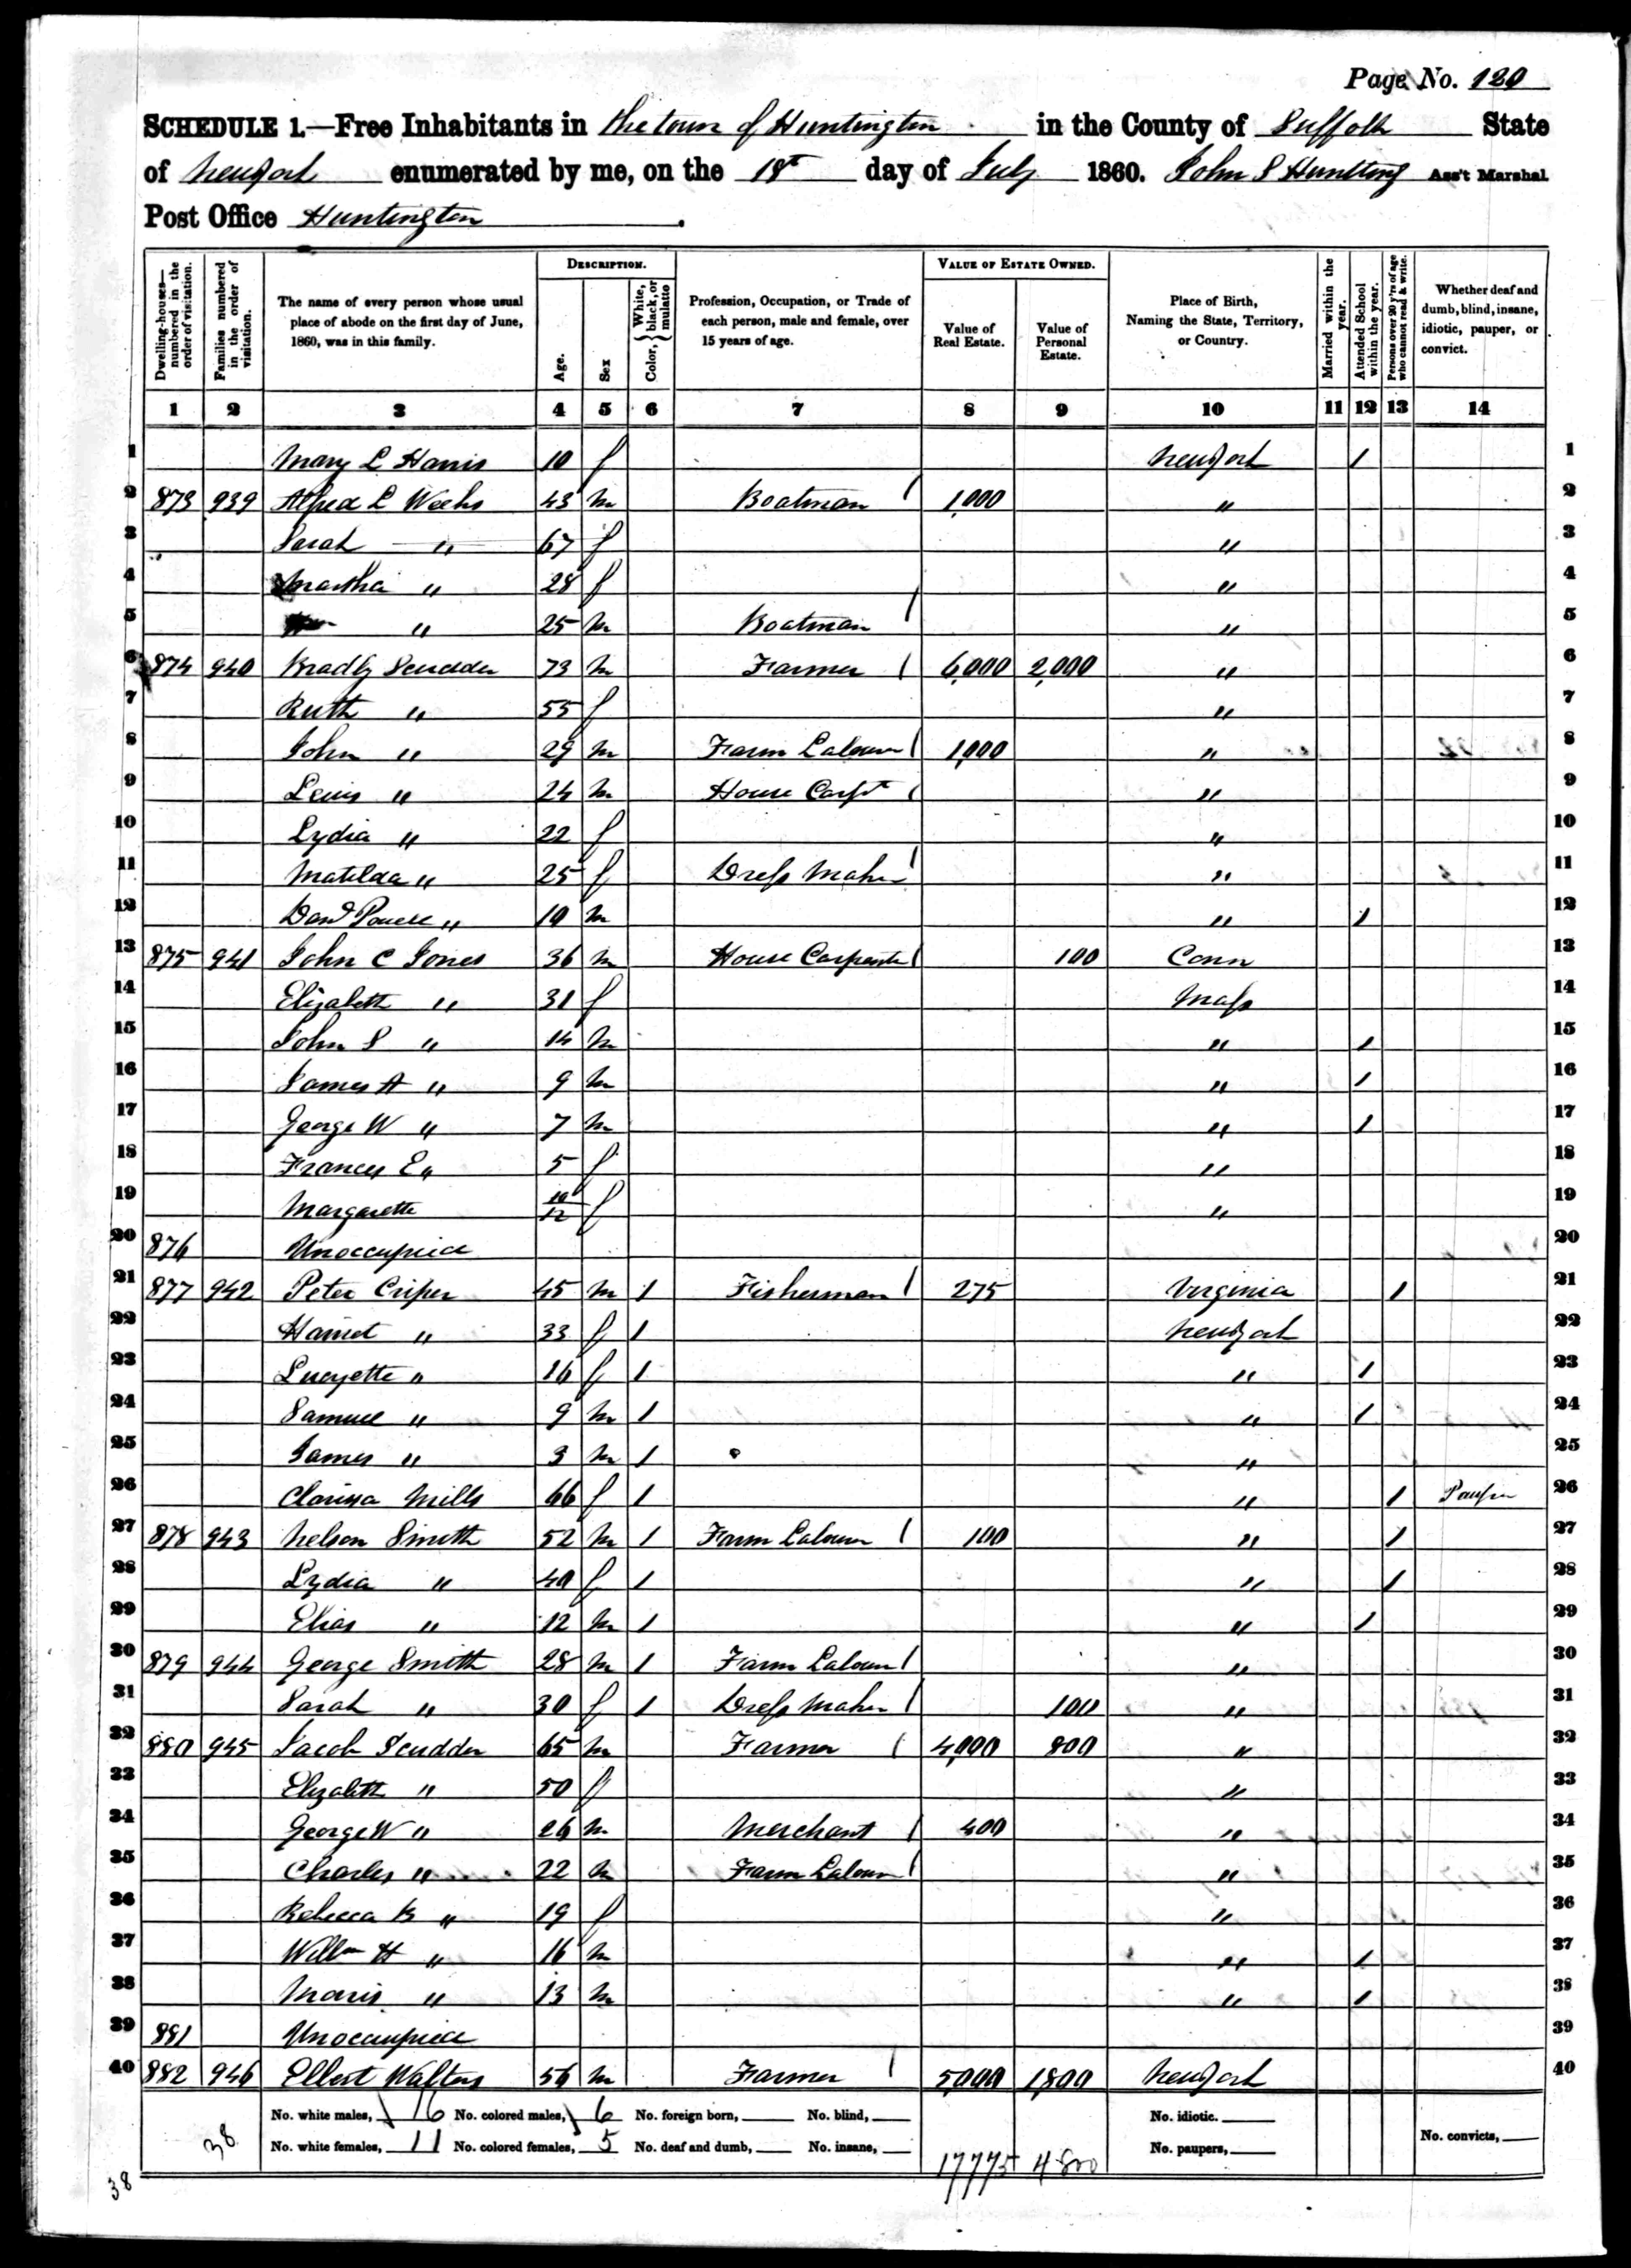 Page No. 120
SCHEDULE 1.—Free Inhabitants in the town of Huntington in the County of Suffolk State
of New York enumerated by me, on the 18th day of July 1860. John S Huntting Ass't Marshal
Post Office Huntington.
Dwelling-houses—numbered in the order of visitation.
Families numbered in the order of visitation.
The name of every person whose usual place of abode on the first day of June, 1860, was in this family.
DESCRIPTION.
Age.
Sex
Color, { White, black, or mulatto
Profession, Occupation, or Trade of each person, male and female, over 15 years of age.
VALUE OF ESTATE OWNED.
Value of Real Estate.
Value of Personal Estate.
Place of Birth, Naming the State, Territory, or Country.
Married within the year.
Attended School within the year.
Persons over 20 y'rs of age who cannot read & write.
Whether deaf and dumb, blind, insane, idiotic, pauper, or convict.
1 2 3 4 5 6 7 8 9 10 11 12 13 14
1 Mary L Harris 10 f New York 1 1
2 873 939 Alfred L Weeks 43 m Boatman / 1,000 " 2
3 Sarah " 67 f " 3
4 Martha " 28 f " 4
5 " 25 m Boatman / " 5
6 874 940 Bradly Scudder 73 m Farmer / 6,000 2,000 " 6
7 Ruth " 55 f " 7
8 John " 29 m Farm Laborer / 1,000 " 8
9 Lewis " 24 m House Carpt / " 9
10 Lydia " 22 f " 10
11 Matilda " 25 f Dress Maker / " 11
12 Powell " 10 m " 1 12
13 875 941 John C Jones 36 m House Carpenter / 100 Conn 13
14 Elizabeth " 31 f Mass 14
15 John S " 14 m " 1 15
16 James A " 9 m " 1 16
17 George W " 7 m " 1 17
18 Frances E " 5 f " 18
19 Margarette 10/12 f " 19
20 876 Unoccupied 20
21 877 942 Peter Criper 45 m 1 Fisherman / 275 Virginia 1 21
22 Harriet " 33 f 1 New York 22
23 Lucyette " 16 f 1 " 1 23
24 Samuel " 9 m 1 " 1 24
25 James " 3 m 1 " 25
26 Clarissa Mills 66 f 1 " 1 Pauper 26
27 878 943 Nelson Smith 52 m 1 Farm Laborer / 100 " 1 27
28 Lydia " 40 f 1 " 1 28
29 Elias " 12 m 1 " 1 29
30 879 944 George Smith 28 m 1 Farm Laborer / " 30
31 Sarah " 30 f 1 Dress Maker / 100 " 31
32 880 945 Jacob Scudder 65 m Farmer / 4,000 800 " 32
33 Elizabeth " 50 f " 33
34 George W " 26 m Merchant / 400 " 34
35 Charles " 22 m Farm Laborer / " 35
36 Rebecca B " 19 f " 36
37 Willm H " 16 m " 1 37
38 Morris " 13 m " 1 38
39 881 Unoccupied 39
40 882 946 Elbert Walters 56 m Farmer / 5,000 1,800 New York 40
No. white males, 16 No. colored males, 6 No. foreign born, No. blind, No. idiotic.
38 No. white females, 11 No. colored females, 5 No. deaf and dumb, No. insane, 17775 4800 No. paupers, No. convicts,
38